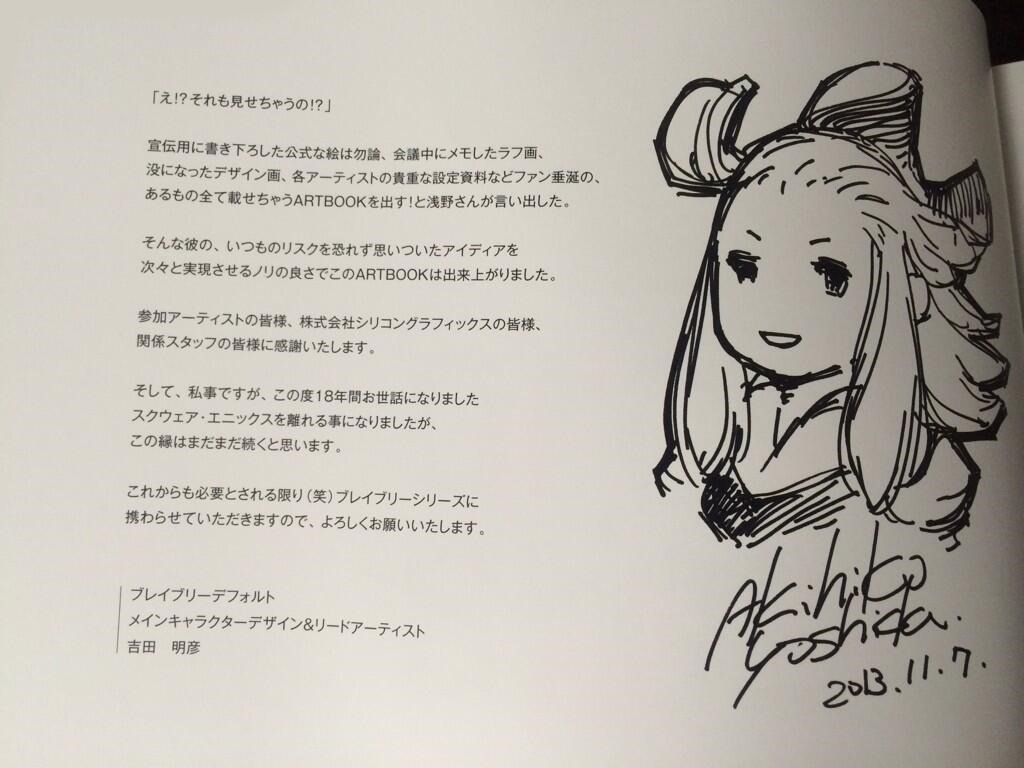 「え!?それも見せちゃうの!?」
宣伝用に書き下ろした公式な絵は勿論、会議中にメモしたラフ画、
没になったデザイン画、各アーティストの貴重な設定資料などファン垂涎の、
あるもの全て載せちゃうARTBOOKを出す!と浅野さんが言い出した。
そんな彼の、いつものリスクを恐れず思いついたアイディアを
次々と実現させるノリの良さでこのARTBOOKは出来上がりました。
参加アーティストの皆様、株式会社シリコングラフィックスの皆様、
関係スタッフの皆様に感謝いたします。
そして、私事ですが、この度18年間お世話になりました
スクウェア・エニックスを離れる事になりましたが、
この縁はまだまだ続くと思います。
これからも必要とされる限り(笑)ブレイブリーシリーズに
携わらせていただきますので、よろしくお願いいたします。
ブレイブリーデフォルト
メインキャラクターデザイン&リードアーティスト
吉田 明彦
Akihiko
Yoshida.
2013.11.7.